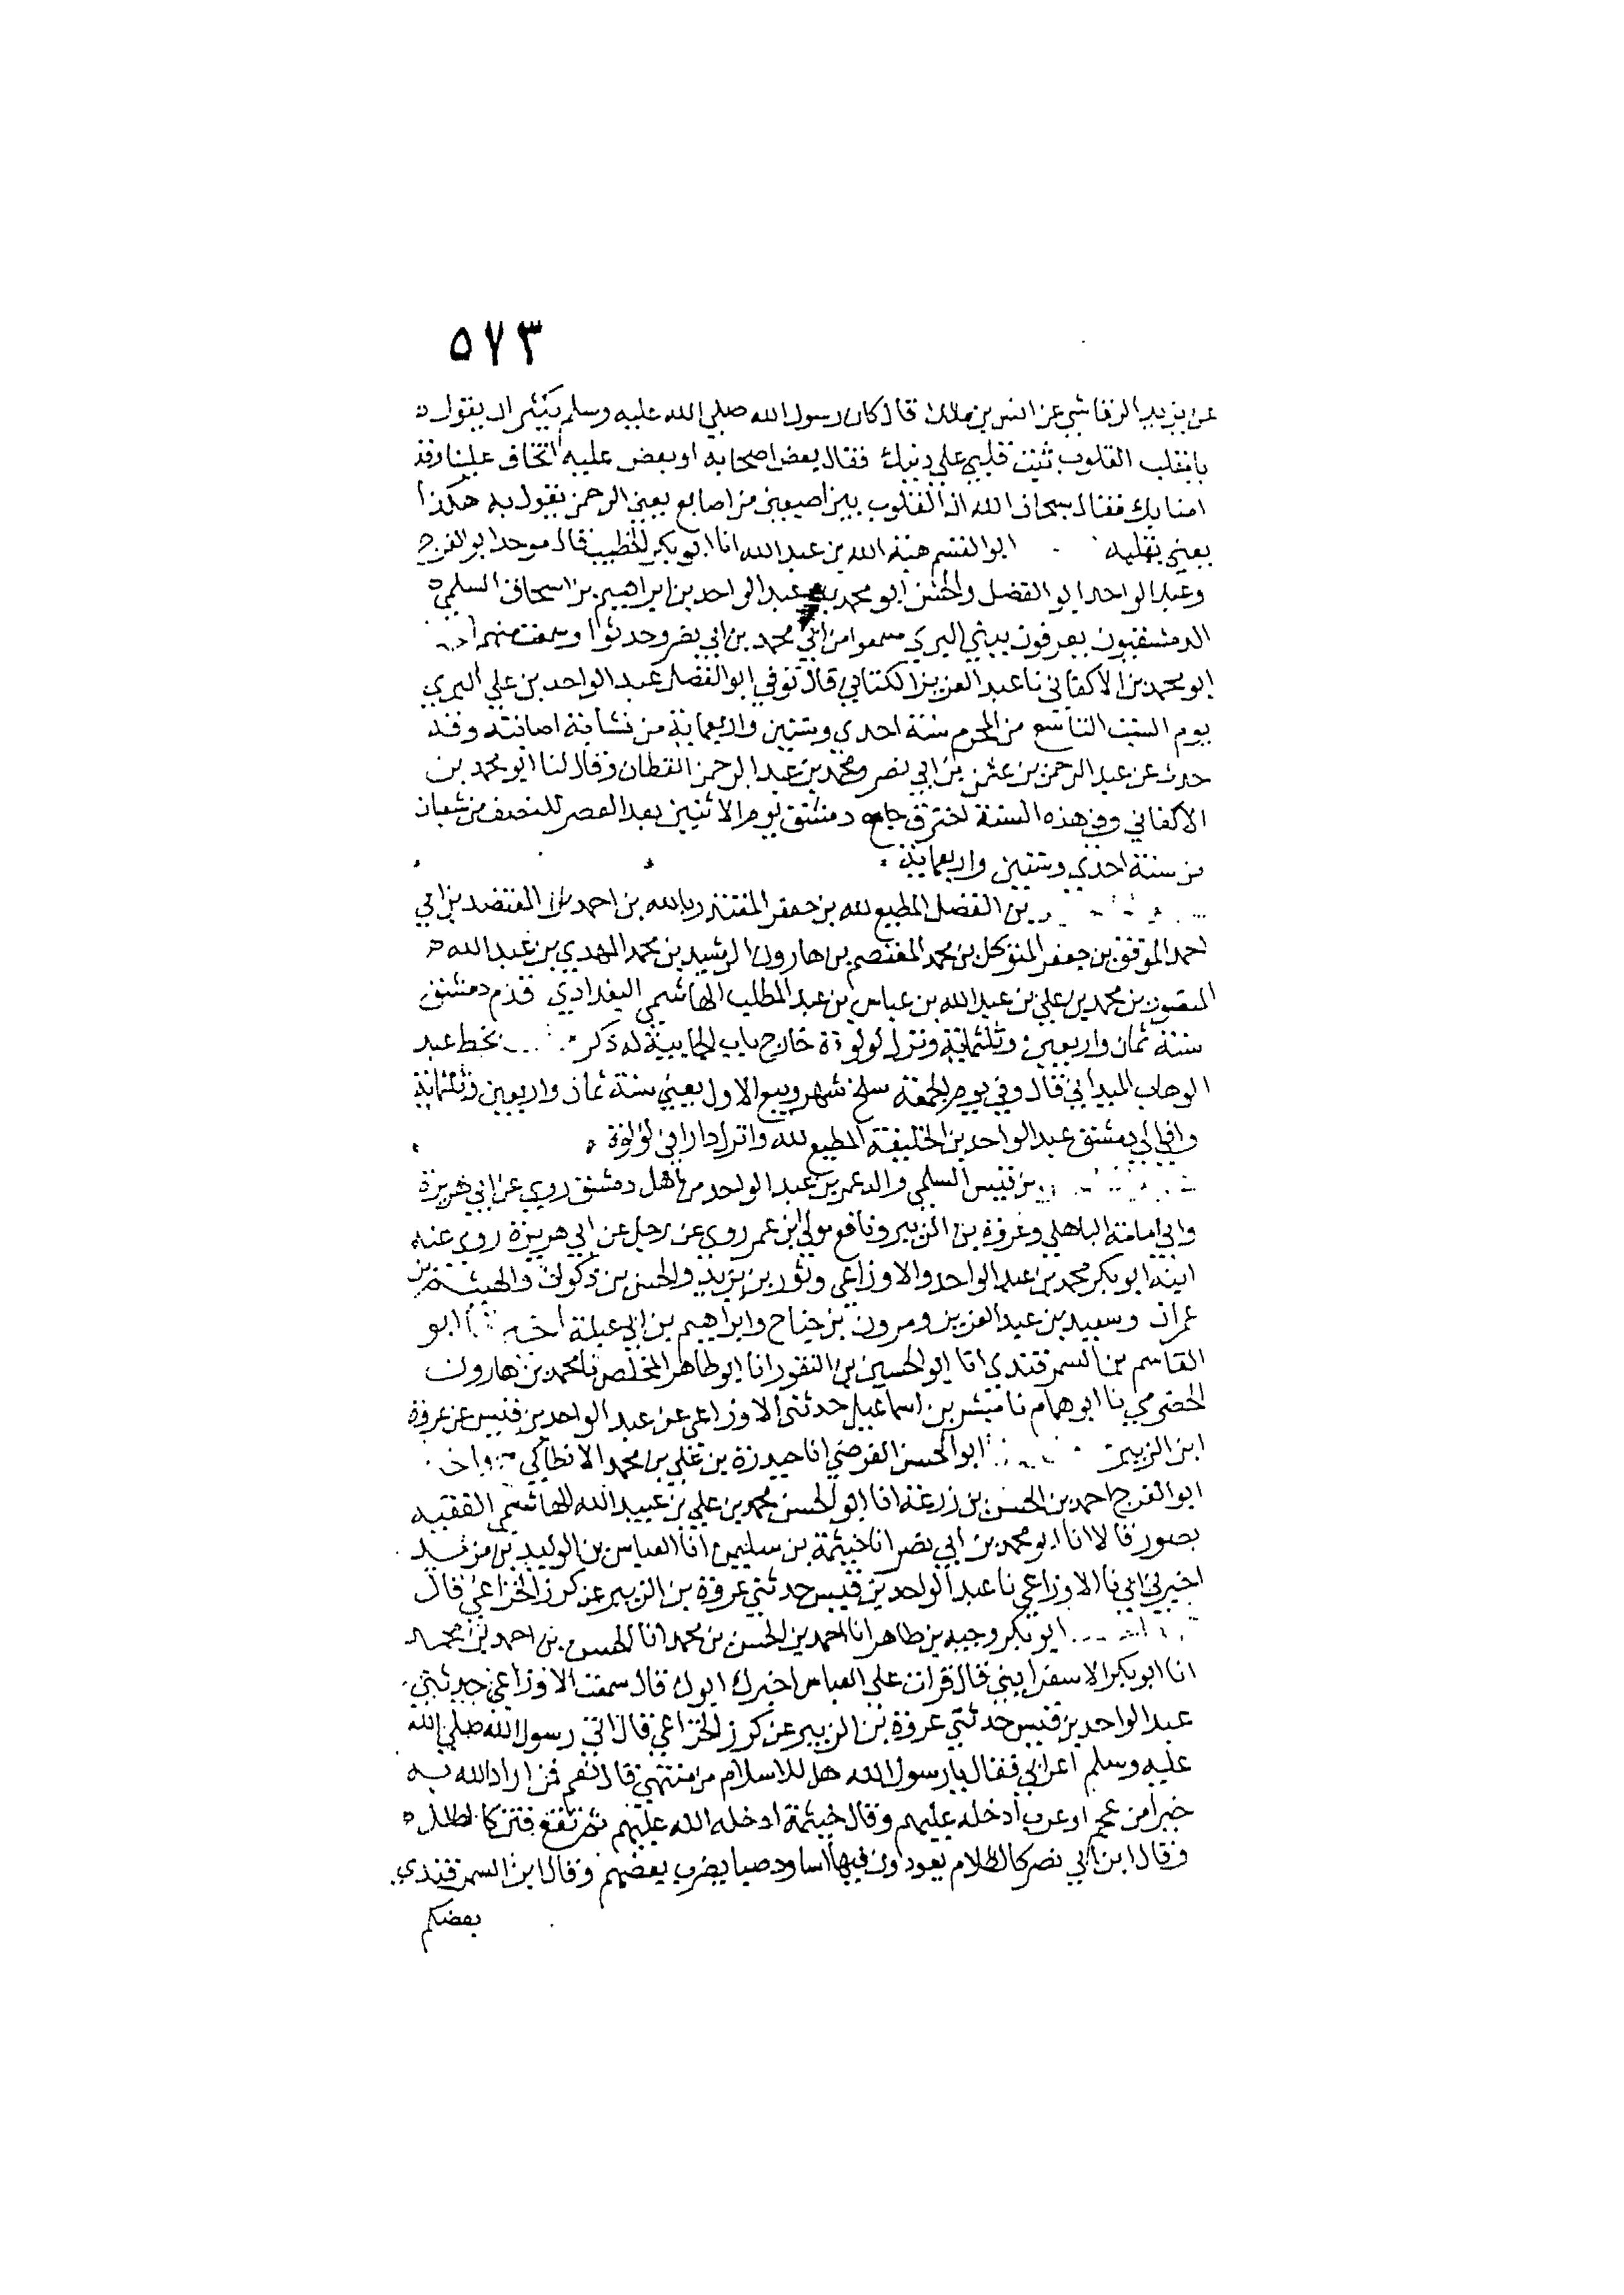 ٥٧٣
عن يزيد الرقاشي عن انس بن ملك قال كان رسول الله صلي الله عليه وسلم يكثر ان يقول
يا مقلب القلوب ثبت قلبي علي دينك فقال بعض اصحابه او بعض عليه اتخاف علينا وقد
امنا بك فقال سبحان الله ان القلوب بين اصبعين من اصابع يعني الرحمن يقول به هكذا
يعني يقلبه ابو القسم هبة الله بن عبد الله انا ابو بكر الخطيب قال موحد ابو الفرج
وعبد الواحد ابو الفضل والحسن ابو محمد عبد الواحد بن ابراهيم بن اسحاق السلمي
الدمشقيون يعرفون ببني البري سمعوا من ابي محمد بن ابي نصر وحدثوا وسمعت منهم
ابو محمد بن الاكفاني نا عبد العزيز الكتاني قال توفي ابو الفضل عبد الواحد بن علي البري
يوم السبت التاسع من المحرم سنة احدي وستين واربعماية من نشابة اصابته وقد
حدث عن عبد الرحمن بن عثمن بن ابي نصر ومحمد بن عبد الرحمن القطان وقال لنا ابو محمد بن
الاكفاني وفي هذه السنة احترق جامع دمشق يوم الاثنين بعد العصر للنصف من شعبان
من سنة احدي وستين واربعماية
بن الفضل المطيع لله بن جعفر المقتدر بالله بن احمد المعتضد بن ابي
احمد الموفق بن جعفر المتوكل بن محمد المعتصم بن هارون الرشيد بن محمد المهدي بن عبد الله
المنصور بن محمد بن علي بن عبد الله بن عباس بن عبد المطلب الهاشمي البغدادي قدم دمشق
سنة ثمان واربعين وثلثماية ونزل لولوة خارج باب الجابية له ذكر بخط عبد
الوهاب الميداني قال وفي يوم الجمعة سلخ شهر ربيع الاول يعني سنة ثمان واربعين وثلثماية
وافي الي دمشق عبد الواحد بن الخليفة المطيع لله وانزل دار ابن لولوة
بن قيس السلمي والد عمر بن عبد الواحد من اهل دمشق روي عن ابي هريرة
وابي امامة الباهلي وعروة بن الزبير ونافع مولي ابن عمر روي عن رجل عن ابي هريرة روي عنه
ابنه ابو بكر محمد بن عبد الواحد والاوزاعي وثور بن يزيد والحسن بن ذكوان والهيثم بن
عمران وسعيد بن عبد العزيز ومرون بن جناح وابراهيم بن ابي عبلة ابو
القاسم بن السمرقندي انا ابو الحسين بن النقور انا ابو طاهر المخلص نا محمد بن هارون
الحضرمي نا ابو همام نا مبشر بن اسماعيل حدثني الاوزاعي عن عبد الواحد بن قيس عن عروة
ابن الزبير ابو الحسن الفرضي انا حيدرة بن علي بن محمد الانطاكي
ابو الفرج احمد بن الحسن بن زرعة انا ابو الحسن محمد بن علي بن عبيد الله الهاشمي الفقيه
بصور قالا انا ابو محمد بن ابي نصر انا خيثمة بن سليمن انا العباس بن الوليد بن مزيد
اخبرني ابي نا الاوزاعي نا عبد الواحد بن قيس حدثني عروة بن الزبير عن كرز الخزاعي قال
ابو بكر وجيه بن طاهر انا احمد بن الحسن بن محمد انا الحسن بن احمد بن محمد
انا ابو بكر الاسفرايني قال قرات علي العباس اخبرك ابوك قال سمعت الاوزاعي حدثني
عبد الواحد بن قيس حدثني عروة بن الزبير عن كرز الخزاعي قال اتي رسول الله صلي الله
عليه وسلم اعرابي فقال يا رسول الله هل للاسلام من منتهي قال نعم فمن اراد الله به
خيرا من عجم او عرب ادخله عليهم وقال خيثمة ادخله الله عليهم ثم تقع فتن كالظلل
وقال ابن ابي نصر كالظلام يعودون فيها اساود صبا يضرب بعضهم وقال ابن السمرقندي
بعضكم